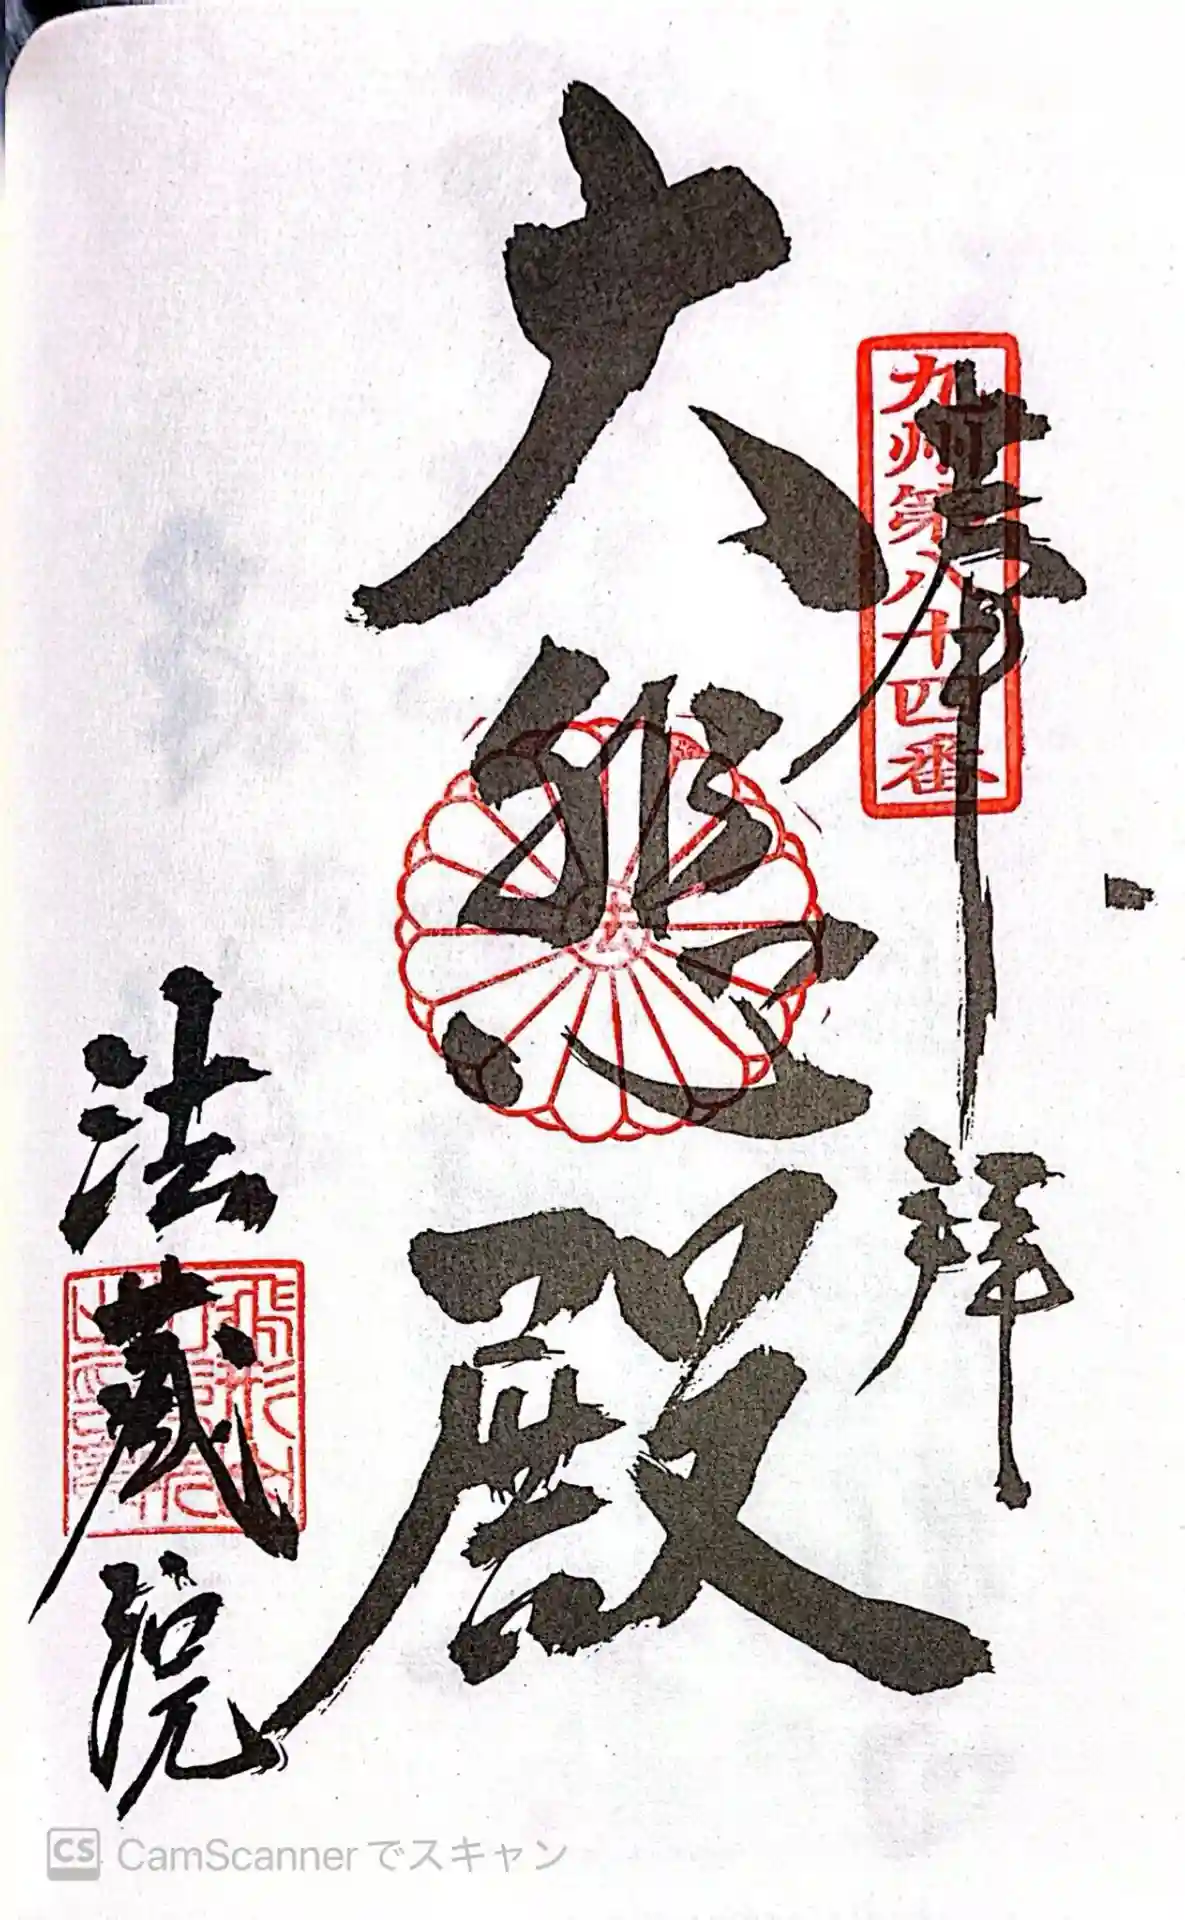 九州第八十四番
奉拝
大悲殿
法蔵院
CS CamScannerでスキャン